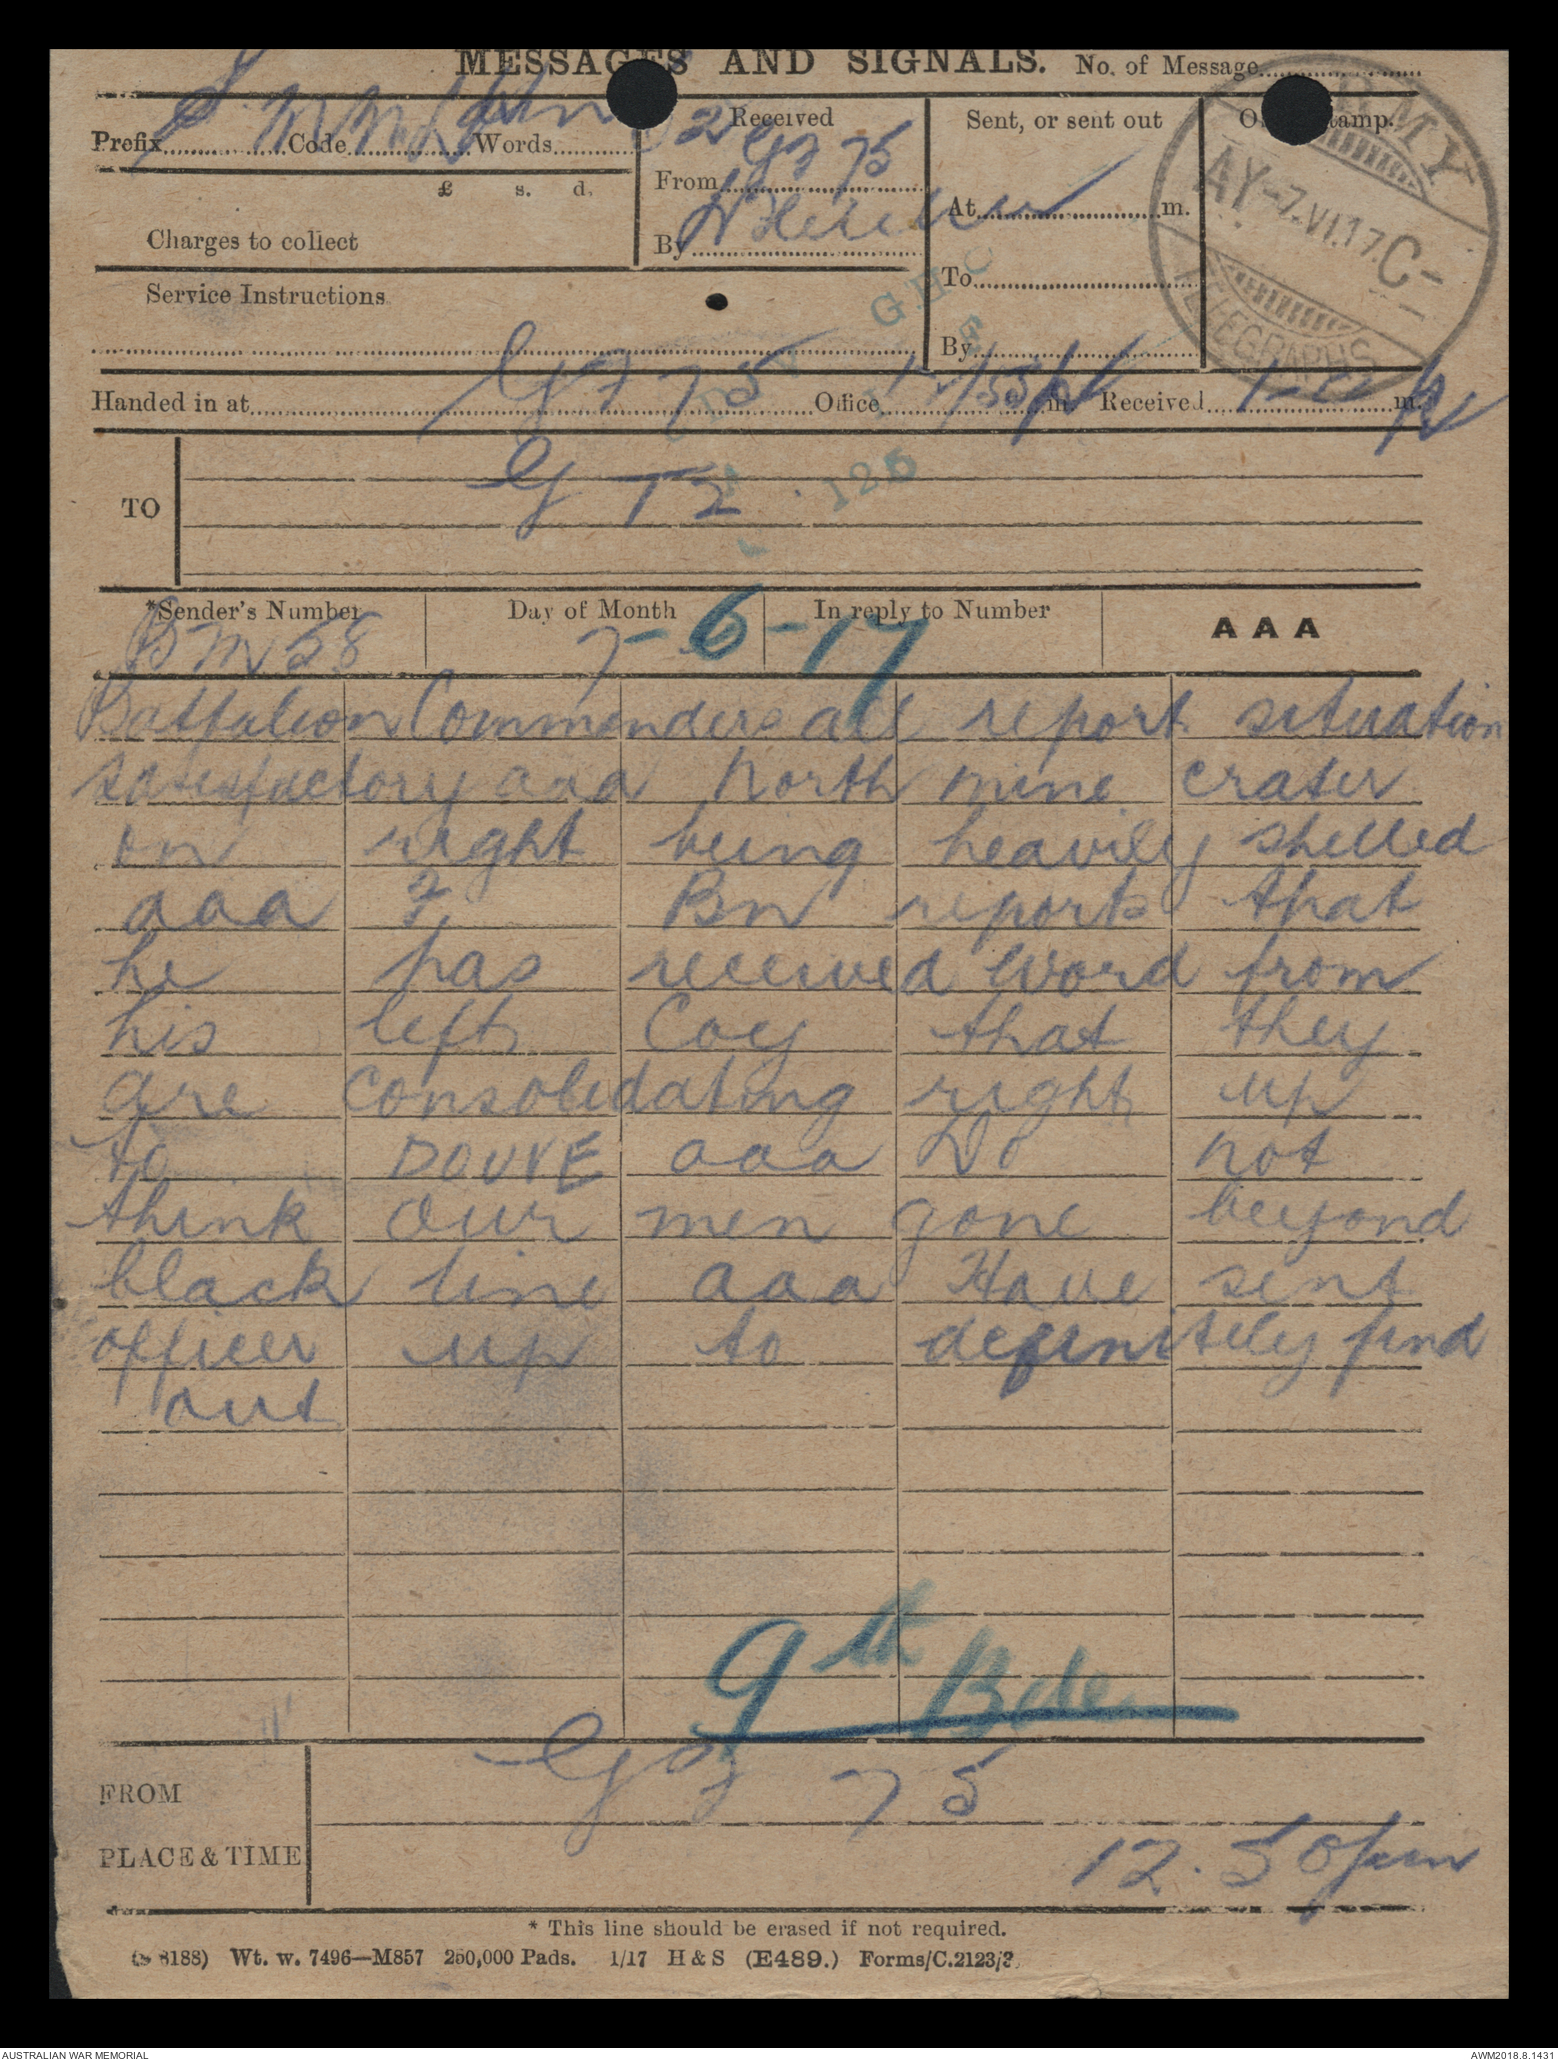 MESSAGES AND SIGNALS. No. of Message
Prefix Code Words
£ s. d.
Charges to collect
Service Instructions
Received
From G 7 75
By
Sent, or sent out
At m.
To
By
ARMY
AY-7.VI.17.C-
TELEGRAPHS
Handed in at G 7 75 Office 12/55 p m. Received 1- m.
TO
G T 2
*Sender's Number Day of Month In reply to Number AAA
BM 58 7-6-17
Battalion Commanders all report situation
satisfactory aaa North mine crater
on right being heavily shelled
aaa ? Bn reports that
he has received word from
his left Coy that they
are consolidating right up
to DOUVE aaa Do not
think our men gone beyond
black line aaa Have sent
officer up to definitely find
out
9th Bde
FROM G 7 75
PLACE & TIME
12.50 pm
* This line should be erased if not required.
8188) Wt. w. 7496—M857 250,000 Pads. 1/17 H & S (E489.) Forms/C.2123/3.
AUSTRALIAN WAR MEMORIAL AWM2018.8.1431